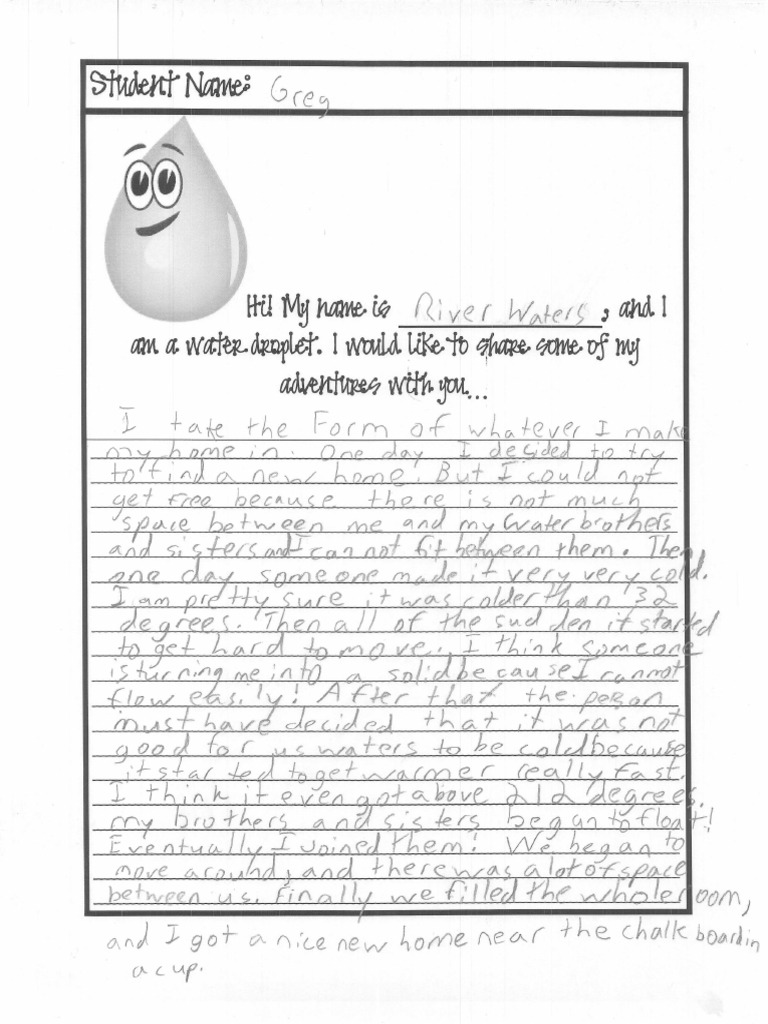 Student Name: Greg
Hi! My name is River Waters, and I
am a water droplet. I would like to share some of my
adventures with you...
I take the Form of whatever I make
my home in. One day I decided to try
to find a new home. But I could not
get free because there is not much
space between me and my water brothers
and sisters and I can not fit between them. Then
one day someone made it very very cold.
I am pretty sure it was colder than 32
degrees. Then all of the sudden it started
to get hard to move.. I think someone
is turning me into a solid because I cannot
flow easily! After that the person
must have decided that it was not
good for us waters to be cold because
it started to get warmer really fast.
I think it even got above 212 degrees.
my brothers and sisters began to float!
Eventually I Joined them! We began to
move around, and there was a lot of space
between us. Finally we filled the whole room,
and I got a nice new home near the chalk board in
a cup.